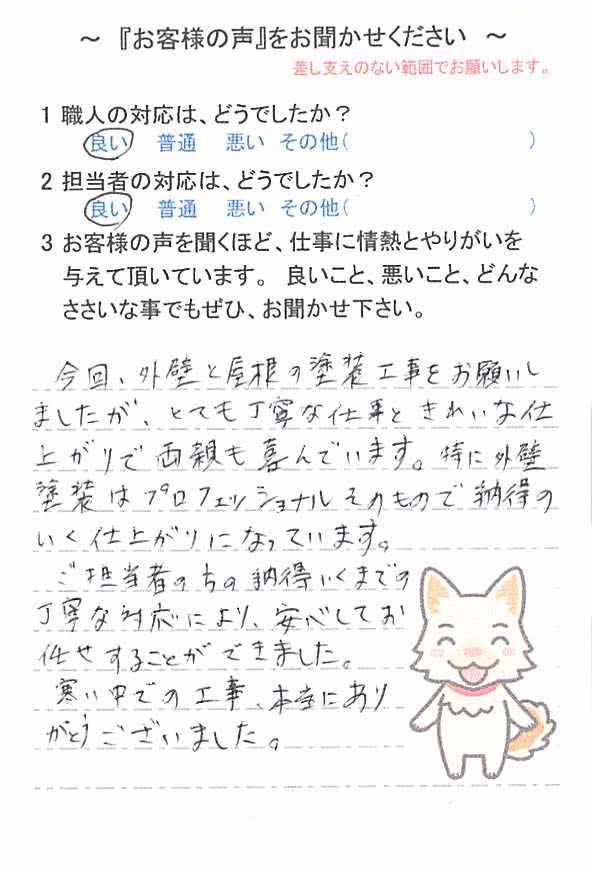 ～ 『お客様の声』をお聞かせください ～
差し支えのない範囲でお願いします。
1 職人の対応は、どうでしたか？
良い 普通 悪い その他( )
2 担当者の対応は、どうでしたか？
良い 普通 悪い その他( )
3 お客様の声を聞くほど、仕事に情熱とやりがいを
与えて頂いています。 良いこと、悪いこと、どんな
ささいな事でもぜひ、お聞かせ下さい。
今回、外壁と屋根の塗装工事をお願いし
ましたが、とても丁寧な仕事ときれいな仕
上がりで両親も喜んでいます。特に外壁
塗装はプロフェッショナルそのもので納得の
いく仕上がりになっています。
ご担当者のちの納得いくまでの
丁寧な対応により、安心してお
任せすることができました。
寒い中での工事、本当にあり
がとうございました。